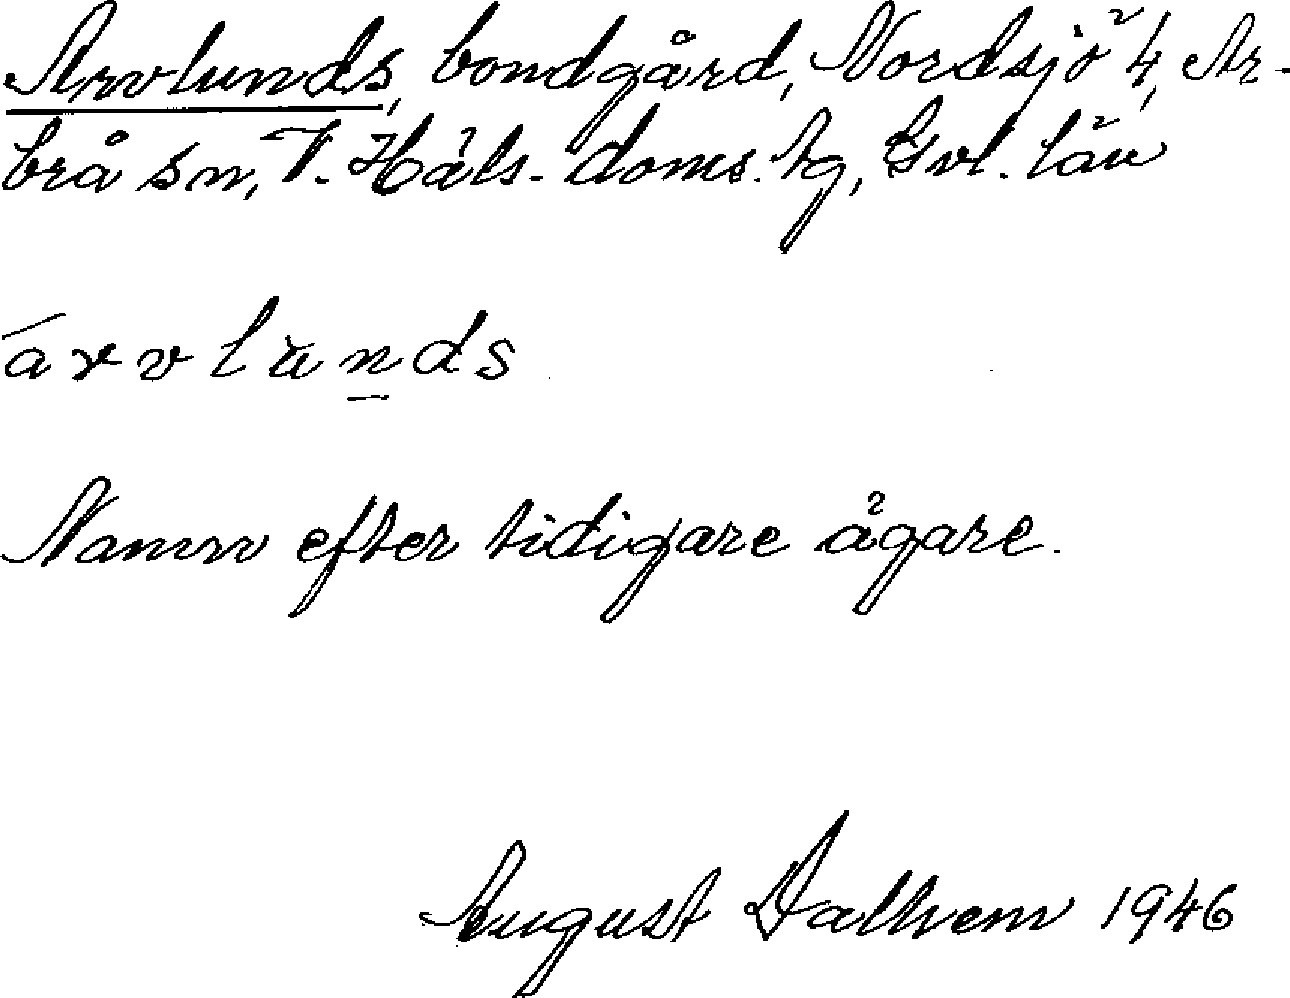 Arvlunds, bondgård, Nordsjö 4, Ar-
brå sn, V. Häls. doms. tg, Gvl. län
árvlùnds
Namn efter tidigare ägare.
August Dalhem 1946